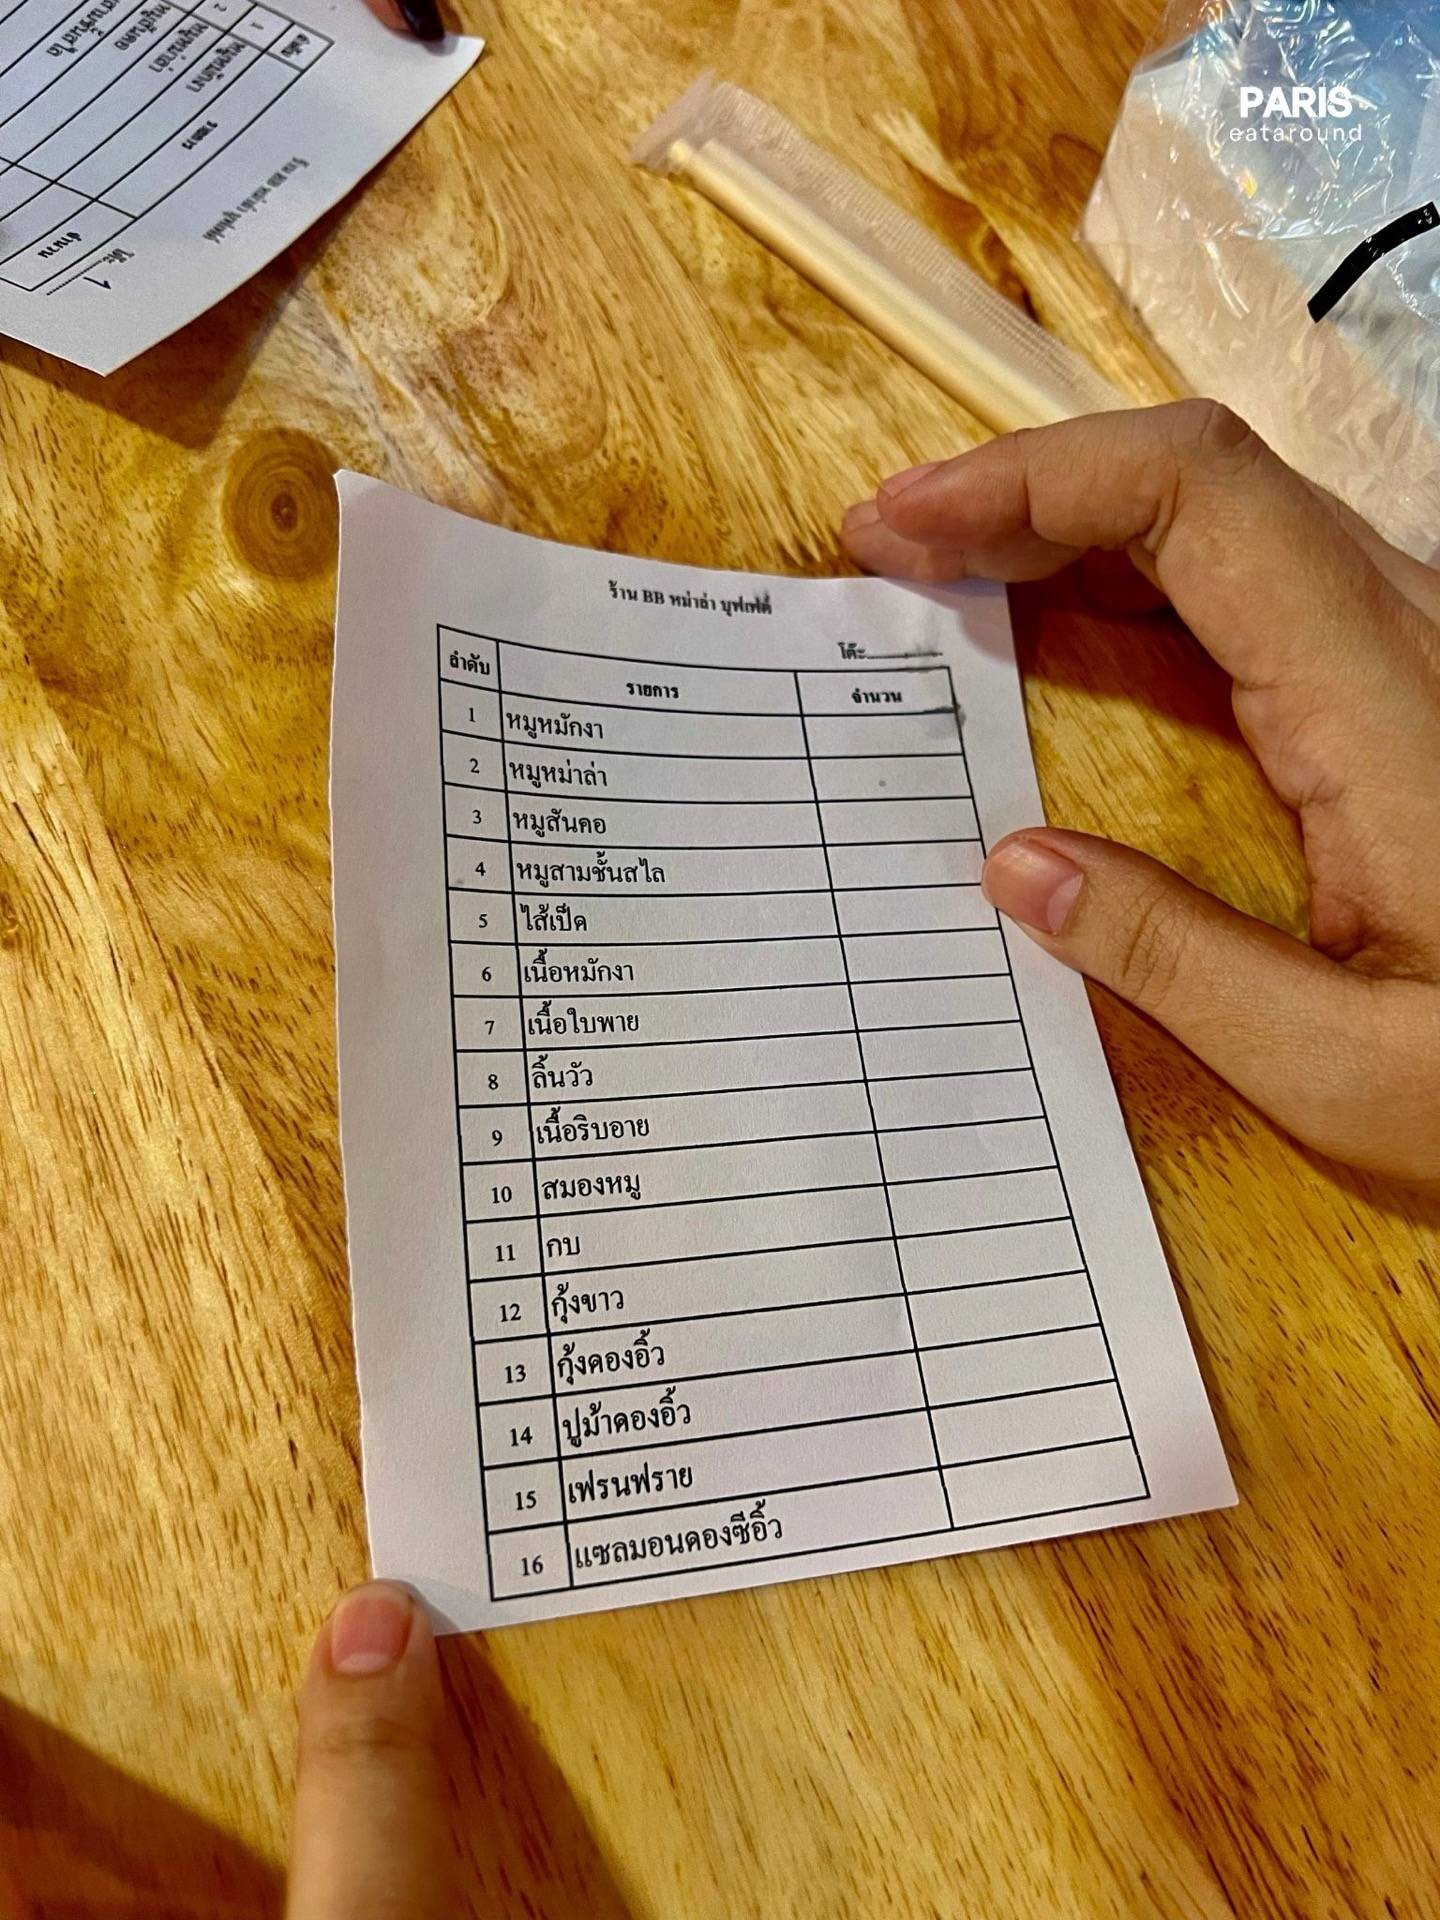 PARIS
eataround
ร้าน BB หม่าล่า บุฟเฟ่ต์
โต๊ะ.................
ลำดับ รายการ จำนวน
1 หมูหมักงา
2 หมูหม่าล่า
3 หมูสันคอ
4 หมูสามชั้นสไล
5 ไส้เป็ด
6 เนื้อหมักงา
7 เนื้อใบพาย
8 ลิ้นวัว
9 เนื้อริบอาย
10 สมองหมู
11 กบ
12 กุ้งขาว
13 กุ้งดองอิ้ว
14 ปูม้าดองอิ้ว
15 เฟรนฟราย
16 แซลมอนดองซีอิ้ว
ร้าน BB หม่าล่า บุฟเฟ่ต์
โต๊ะ.....1.....
ลำดับ รายการ จำนวน
1 หมูหมักงา
2 หมูหม่าล่า
หมูสันคอ